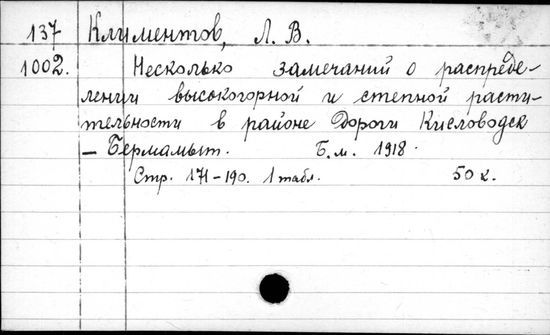 137 Климентов, Л. В.
1002. Несколько замечаний о распреде-
лении высокогорной и степной расти-
тельности в районе Дороги Кисловодск
— Бермамыт. Б.м. 1918.
Стр. 171-190. 1 табл. 50 к.